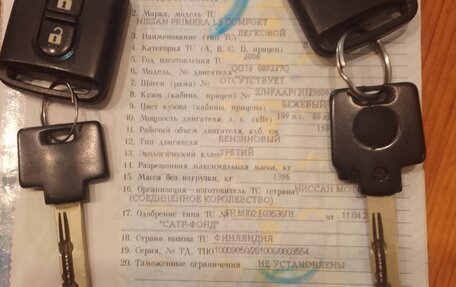 2. Марка, модель ТС
NISSAN PRIMERA 1.6 COMFORT
3. Наименование (тип ТС) ЛЕГКОВОЙ
4. Категория ТС (A, B, C, D, прицеп) B
5. Год изготовления ТС 2006
6. Модель, № двигателя QG16 080227Q
7. Шасси (рама) № ОТСУТСТВУЕТ
8. Кузов (кабина, прицеп) №
9. Цвет кузова (кабины, прицепа) БЕЖЕВЫЙ
10. Мощность двигателя, л. с. (кВт) 109 л.с. 80
11. Рабочий объем двигателя, куб. см
12. Тип двигателя БЕНЗИНОВЫЙ
13. Экологический класс ТРЕТИЙ
14. Разрешенная максимальная масса, кг
15. Масса без нагрузки, кг 1396
16. Организация – изготовитель ТС (страна) НИССАН МОТ
(СОЕДИНЕННОЕ КОРОЛЕВСТВО)
17. Одобрение типа ТС № от 11.04.2
"САТР-ФОНД"
18. Страна вывоза ТС ФИНЛЯНДИЯ
19. Серия, № ТД, ТПО 10009050/261006/0003554
20. Таможенные ограничения НЕ УСТАНОВЛЕНЫ